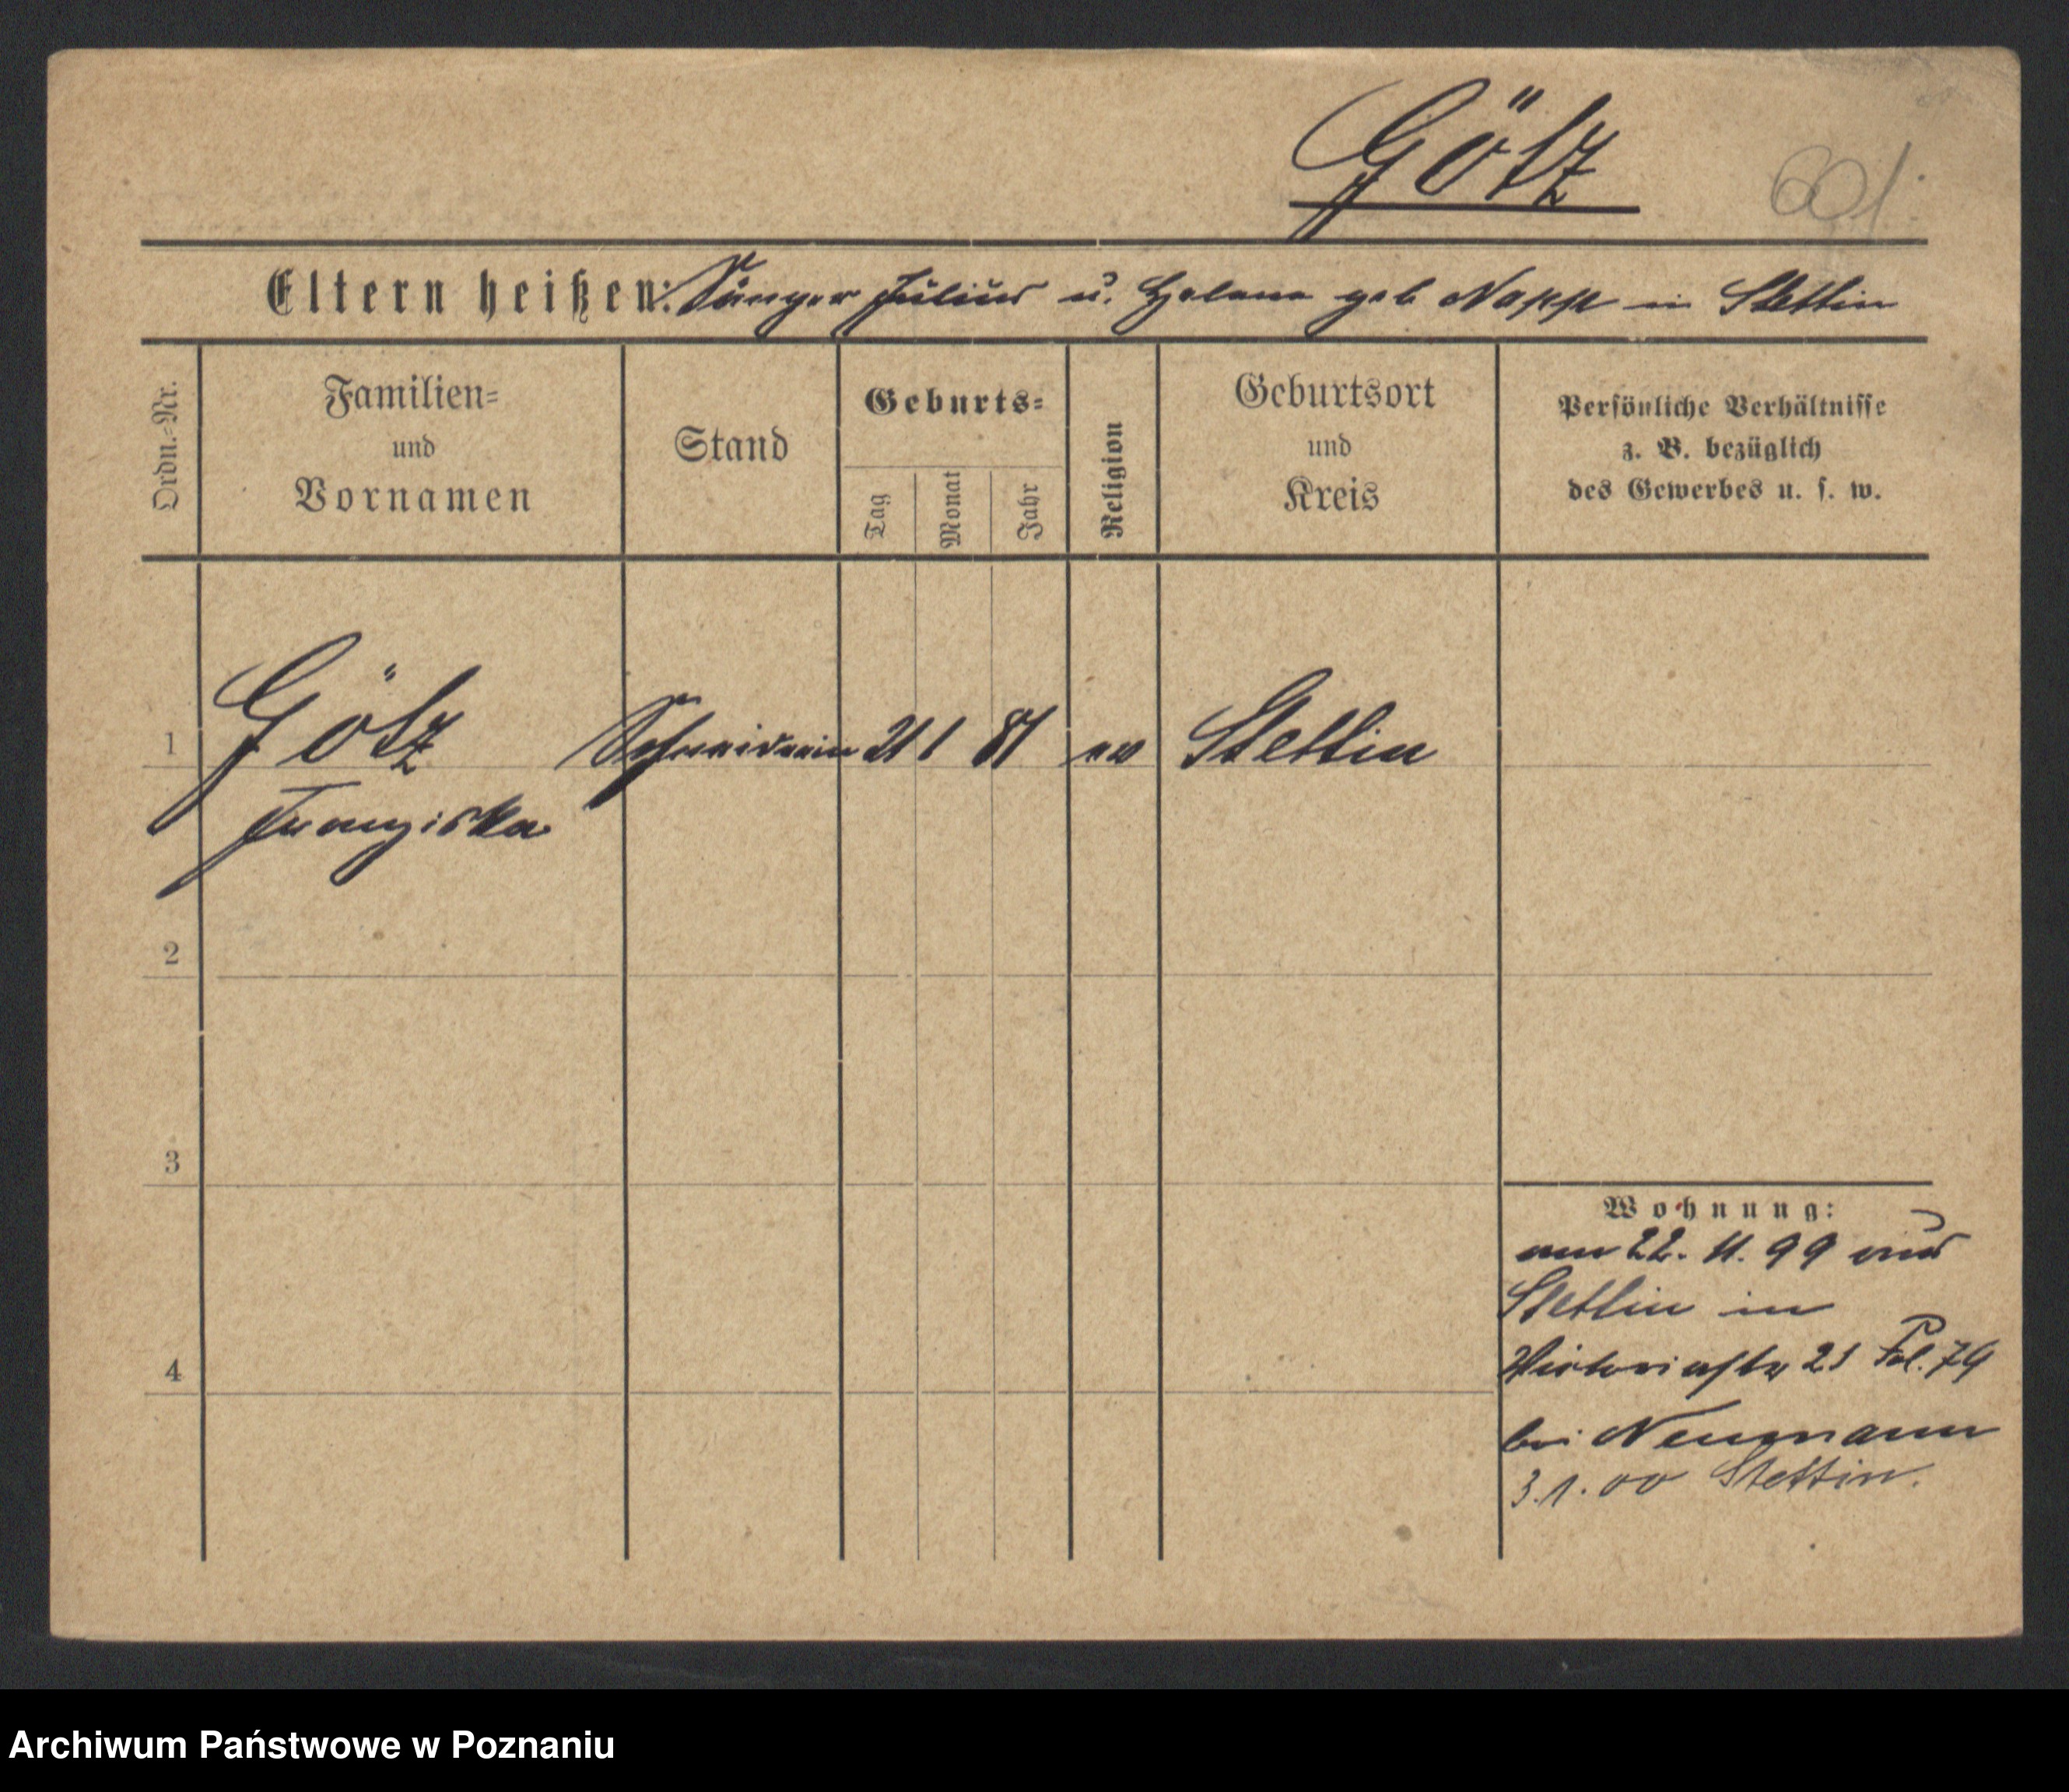 Götz
601.
Eltern heißen: Sänger Julius u. Helene geb Napp in Stettin
Ordn.-Nr.
Familien=
und
Vornamen
Stand
Geburts=
Tag
Monat
Jahr
Religion
Geburtsort
und
Kreis
Persönliche Verhältnisse
z. B. bezüglich
des Gewerbes u. s. w.
1 Götz Schneiderin 21 1 81 ev Stettin
Franziska
2
3
4
Wohnung:
am 22. 11. 99 aus
Stettin in
Victoriastr 21 Pol. 79
bei Neumann
3.1.00 Stettin.
Archiwum Państwowe w Poznaniu